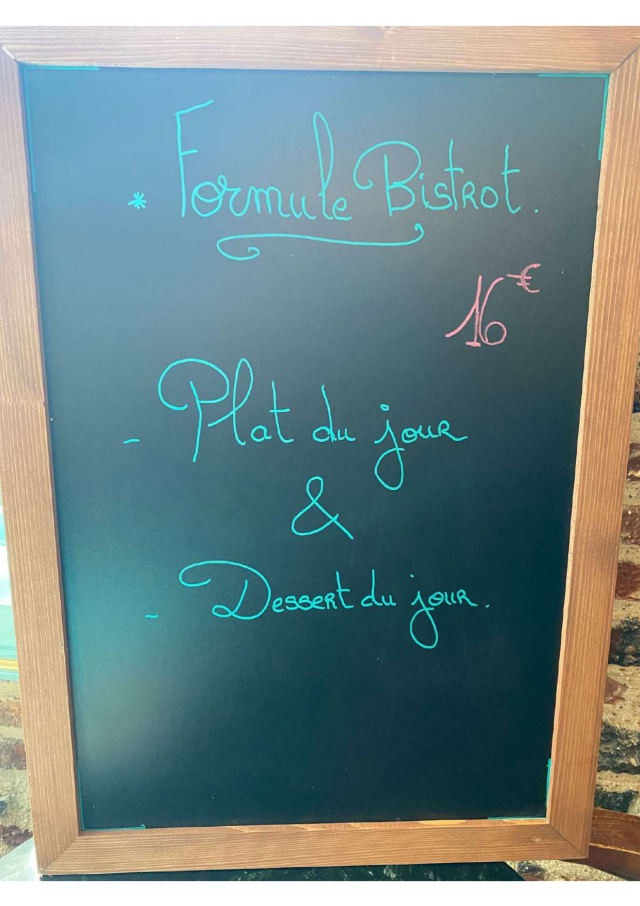 * Formule Bistrot.
16€
- Plat du jour
&
- Dessert du jour.